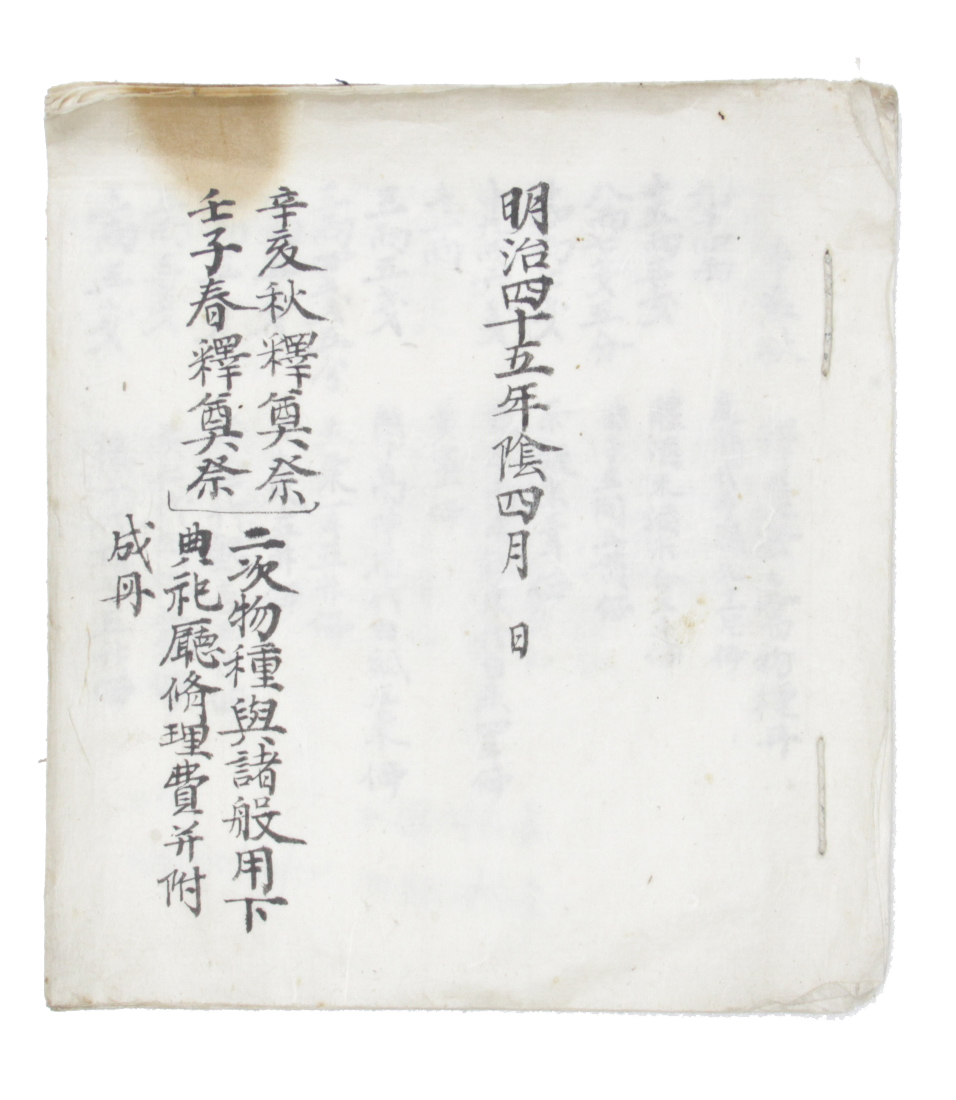 明治四十五年陰四月 日
辛亥秋釋奠祭
壬子春釋奠祭
二次物種與諸般用下
典祀廳修理費并附
成冊